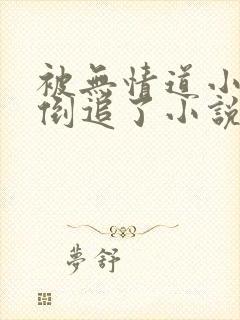 被無情道小
倒追了小說
夢舒